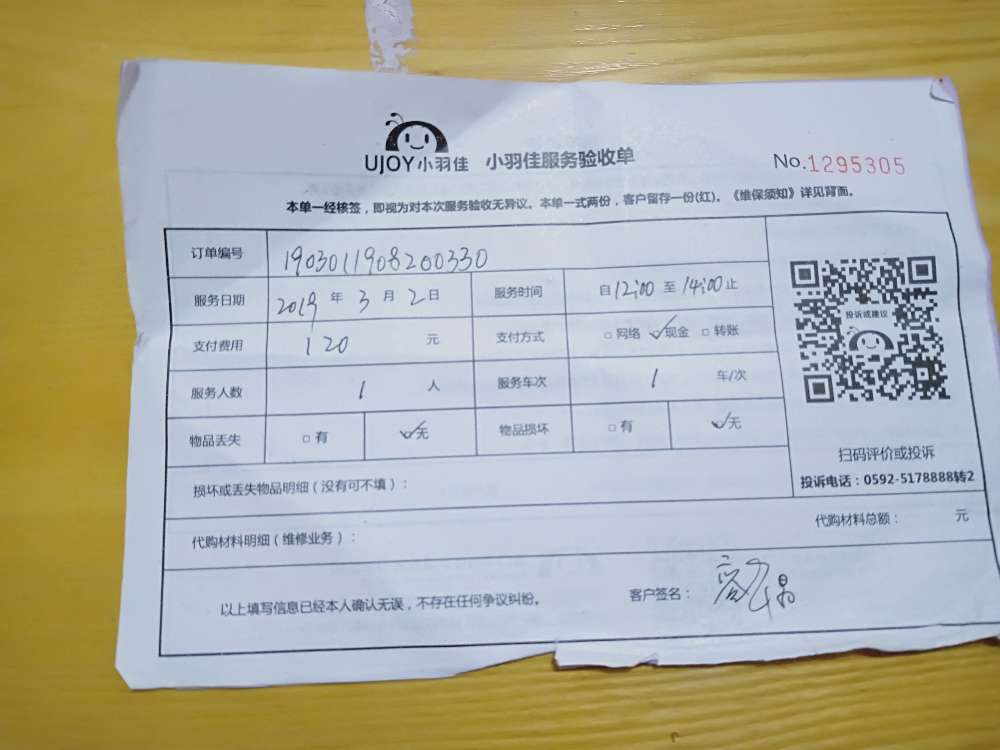 UJOY小羽佳 小羽佳服务验收单 No.1295305
本单一经核签，即视为对本次服务验收无异议。本单一式两份，客户留存一份(红)。《维保须知》详见背面。
订单编号 1903011908200330
服务日期 2019 年 3 月 2 日 服务时间 自 12:00 至 14:00 止
支付费用 120 元 支付方式 □ 网络 ☑ 现金 □ 转账
服务人数 1 人 服务车次 1 车/次
物品丢失 □ 有 ☑ 无 物品损坏 □ 有 ☑ 无
投诉或建议
扫码评价或投诉
投诉电话：0592-5178888转2
损坏或丢失物品明细（没有可不填）：
代购材料明细（维修业务）： 代购材料总额： 元
以上填写信息已经本人确认无误，不存在任何争议纠纷。 客户签名：